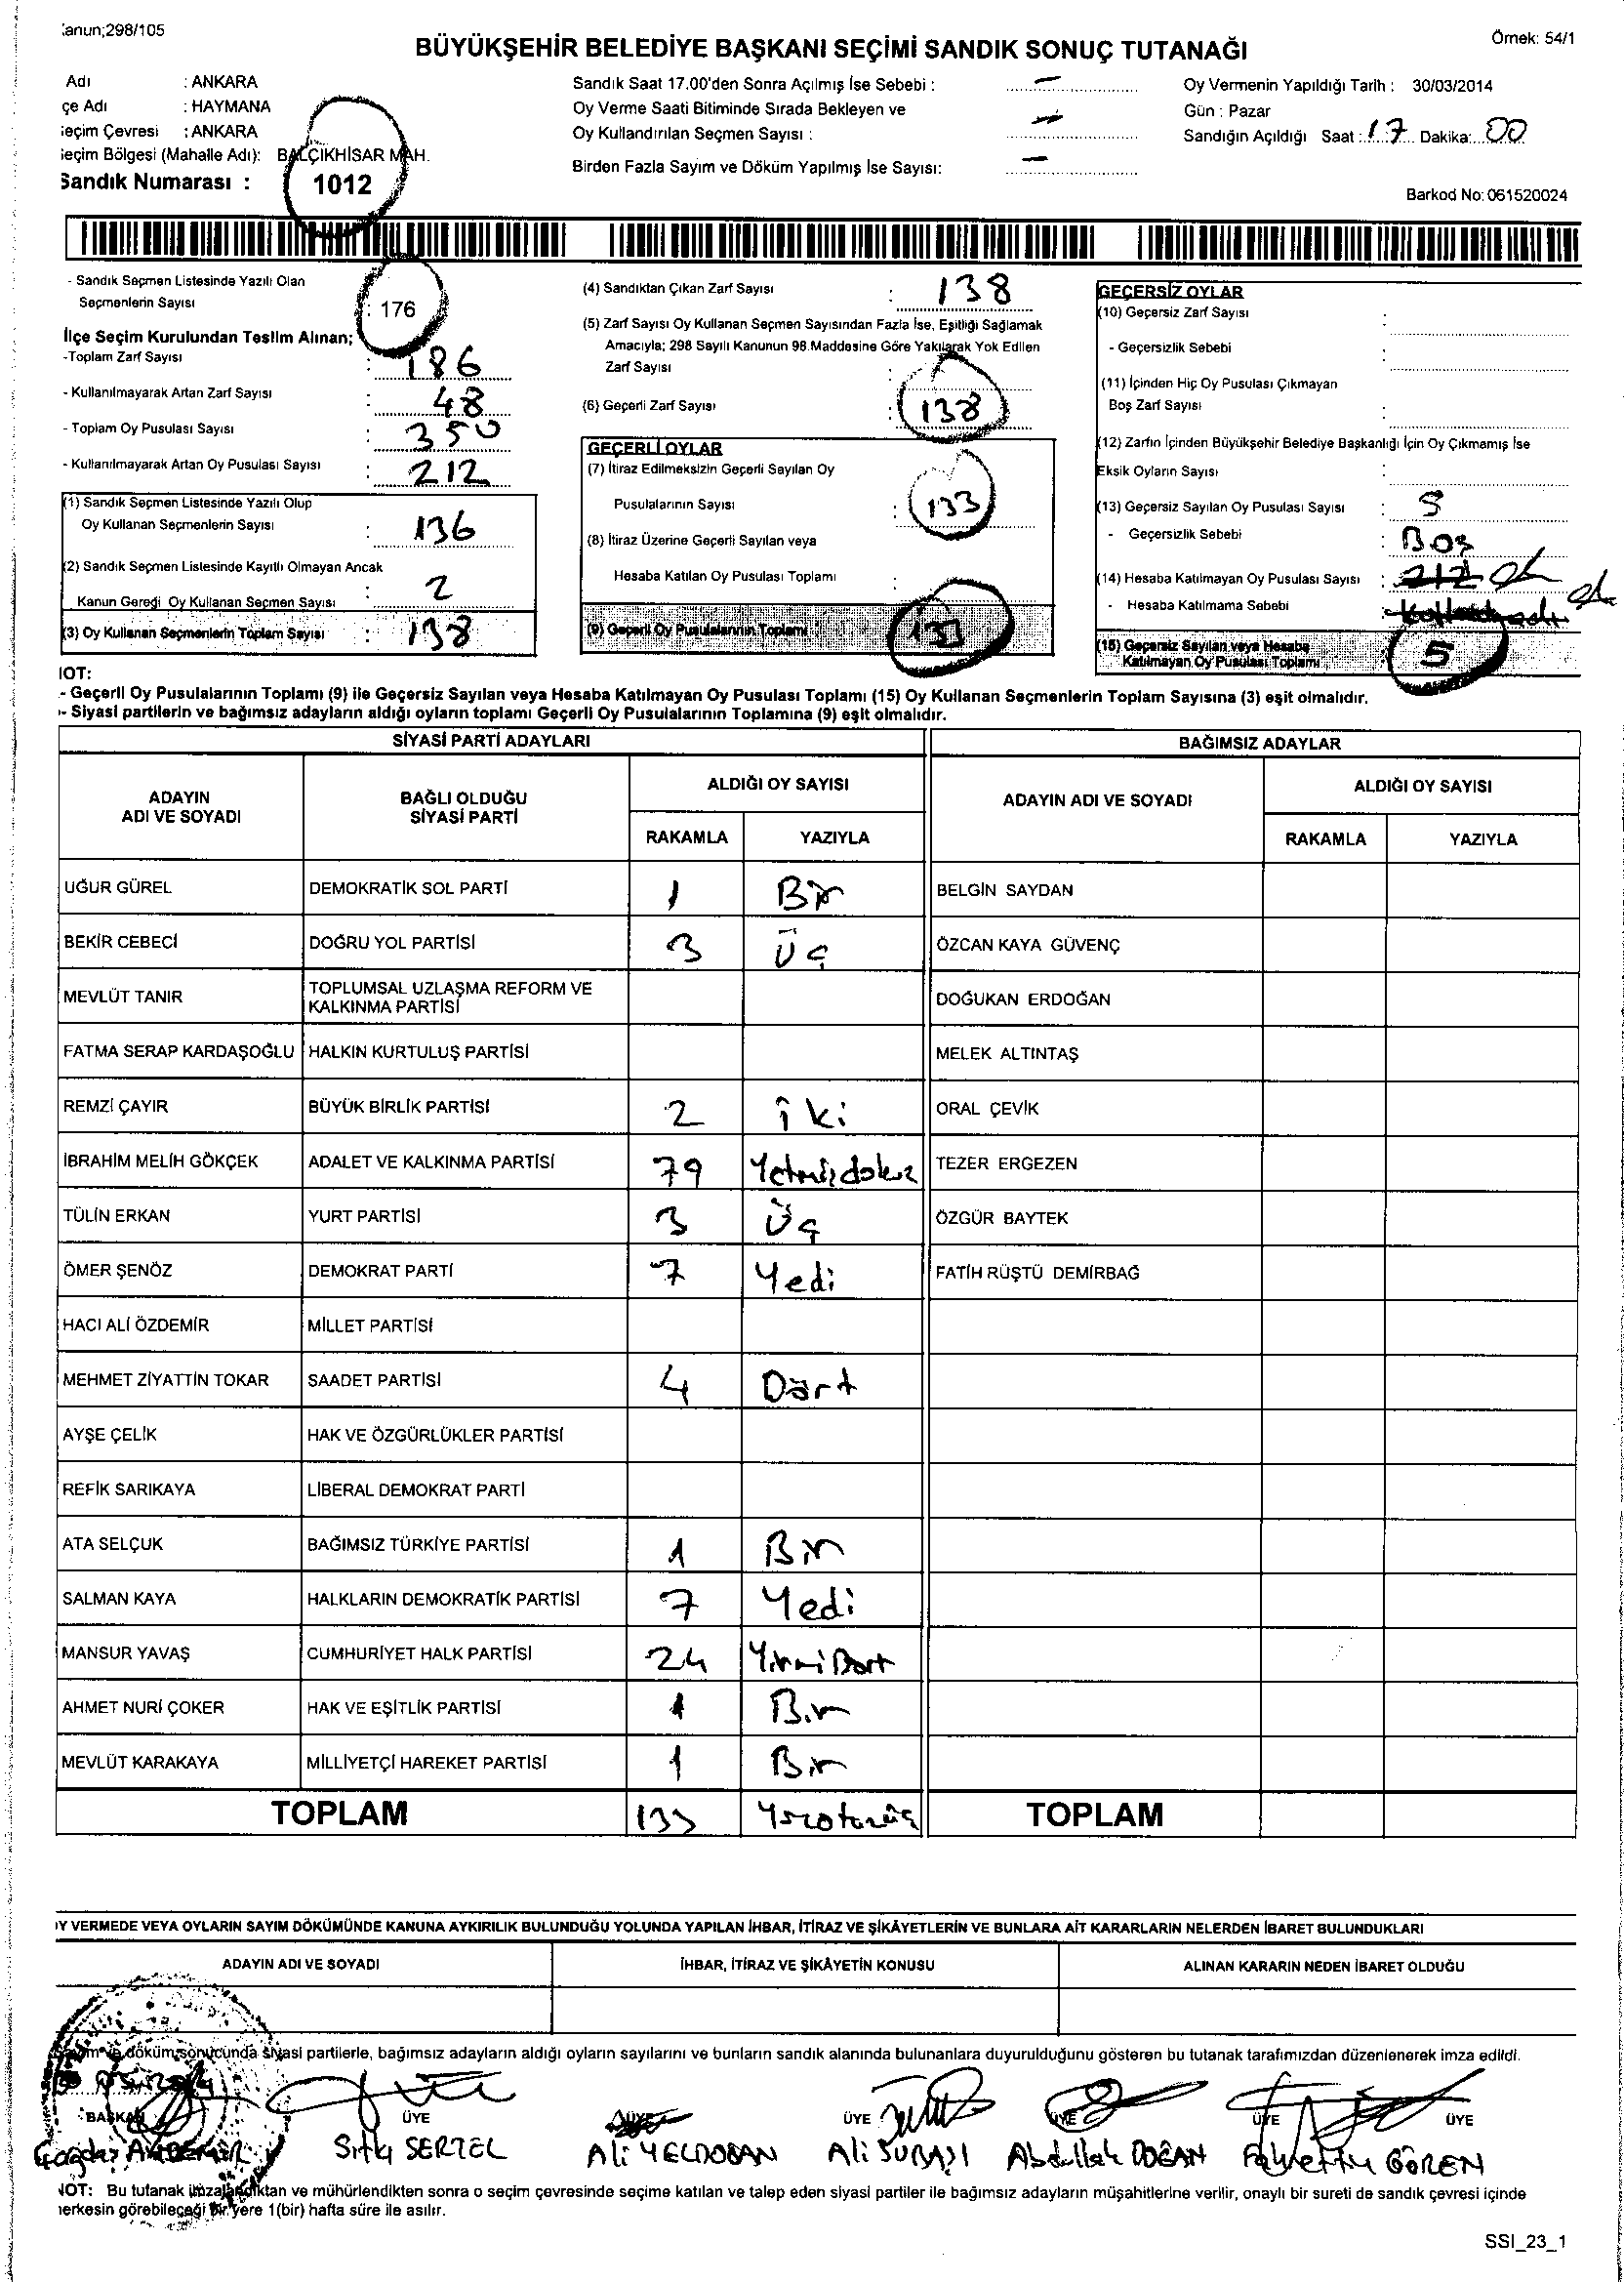 anun;298/105
Örnek: 54/1
BÜYÜKŞEHİR BELEDİYE BAŞKANI SEÇİMİ SANDIK SONUÇ TUTANAĞI
Adı : ANKARA
çe Adı : HAYMANA
eçim Çevresi : ANKARA
eçim Bölgesi (Mahalle Adı): BALÇIKHİSAR MAH.
Sandık Numarası : 1012
Sandık Saat 17.00'den Sonra Açılmış İse Sebebi : —
Oy Verme Saati Bitiminde Sırada Bekleyen ve
Oy Kullandırılan Seçmen Sayısı : —
Birden Fazla Sayım ve Döküm Yapılmış İse Sayısı: —
Oy Vermenin Yapıldığı Tarih : 30/03/2014
Gün : Pazar
Sandığın Açıldığı Saat : 17 Dakika: 00
Barkod No: 061520024
- Sandık Seçmen Listesinde Yazılı Olan
Seçmenlerin Sayısı : 176
İlçe Seçim Kurulundan Teslim Alınan;
-Toplam Zarf Sayısı : 186
- Kullanılmayarak Artan Zarf Sayısı : 48
- Toplam Oy Pusulası Sayısı : 350
- Kullanılmayarak Artan Oy Pusulası Sayısı : 212
(1) Sandık Seçmen Listesinde Yazılı Olup
Oy Kullanan Seçmenlerin Sayısı : 136
(2) Sandık Seçmen Listesinde Kayıtlı Olmayan Ancak
Kanun Gereği Oy Kullanan Seçmen Sayısı : 2
(3) Oy Kullanan Seçmenlerin Toplam Sayısı : 138
(4) Sandıktan Çıkan Zarf Sayısı : 138
(5) Zarf Sayısı Oy Kullanan Seçmen Sayısından Fazla İse, Eşitliği Sağlamak
Amacıyla; 298 Sayılı Kanunun 98.Maddesine Göre Yakılarak Yok Edilen
Zarf Sayısı :
(6) Geçerli Zarf Sayısı : 138
GEÇERLİ OYLAR
(7) İtiraz Edilmeksizin Geçerli Sayılan Oy
Pusulalarının Sayısı : 133
(8) İtiraz Üzerine Geçerli Sayılan veya
Hesaba Katılan Oy Pusulası Toplamı :
(9) Geçerli Oy Pusulalarının Toplamı : 133
GEÇERSİZ OYLAR
(10) Geçersiz Zarf Sayısı :
- Geçersizlik Sebebi :
(11) İçinden Hiç Oy Pusulası Çıkmayan
Boş Zarf Sayısı :
(12) Zarfın İçinden Büyükşehir Belediye Başkanlığı İçin Oy Çıkmamış İse
Eksik Oyların Sayısı :
(13) Geçersiz Sayılan Oy Pusulası Sayısı : 5
- Geçersizlik Sebebi : Boş
(14) Hesaba Katılmayan Oy Pusulası Sayısı : 212
- Hesaba Katılmama Sebebi :
(15) Geçersiz Sayılan veya Hesaba
Katılmayan Oy Pusulası Toplamı : 5
IOT:
- Geçerli Oy Pusulalarının Toplamı (9) ile Geçersiz Sayılan veya Hesaba Katılmayan Oy Pusulası Toplamı (15) Oy Kullanan Seçmenlerin Toplam Sayısına (3) eşit olmalıdır.
- Siyasi partilerin ve bağımsız adayların aldığı oyların toplamı Geçerli Oy Pusulalarının Toplamına (9) eşit olmalıdır.
SİYASİ PARTİ ADAYLARI
ADAYIN ADI VE SOYADI
BAĞLI OLDUĞU SİYASİ PARTİ
ALDIĞI OY SAYISI
RAKAMLA YAZIYLA
UĞUR GÜREL DEMOKRATİK SOL PARTİ 1 Bir
BEKİR CEBECİ DOĞRU YOL PARTİSİ 3 Üç
MEVLÜT TANIR TOPLUMSAL UZLAŞMA REFORM VE KALKINMA PARTİSİ
FATMA SERAP KARDAŞOĞLU HALKIN KURTULUŞ PARTİSİ
REMZİ ÇAYIR BÜYÜK BİRLİK PARTİSİ 2 iki
İBRAHİM MELİH GÖKÇEK ADALET VE KALKINMA PARTİSİ 79 Yetmişdokuz
TÜLİN ERKAN YURT PARTİSİ 3 Üç
ÖMER ŞENÖZ DEMOKRAT PARTİ 7 Yedi
HACI ALİ ÖZDEMİR MİLLET PARTİSİ
MEHMET ZİYATTİN TOKAR SAADET PARTİSİ 4 Dört
AYŞE ÇELİK HAK VE ÖZGÜRLÜKLER PARTİSİ
REFİK SARIKAYA LİBERAL DEMOKRAT PARTİ
ATA SELÇUK BAĞIMSIZ TÜRKİYE PARTİSİ 1 Bir
SALMAN KAYA HALKLARIN DEMOKRATİK PARTİSİ 7 Yedi
MANSUR YAVAŞ CUMHURİYET HALK PARTİSİ 24 Yirmi Dört
AHMET NURİ ÇOKER HAK VE EŞİTLİK PARTİSİ 1 Bir
MEVLÜT KARAKAYA MİLLİYETÇİ HAREKET PARTİSİ 1 Bir
TOPLAM 133 Yüzotuzüç
BAĞIMSIZ ADAYLAR
ADAYIN ADI VE SOYADI
ALDIĞI OY SAYISI
RAKAMLA YAZIYLA
BELGİN SAYDAN
ÖZCAN KAYA GÜVENÇ
DOĞUKAN ERDOĞAN
MELEK ALTINTAŞ
ORAL ÇEVİK
TEZER ERGEZEN
ÖZGÜR BAYTEK
FATİH RÜŞTÜ DEMİRBAĞ
TOPLAM
Y VERMEDE VEYA OYLARIN SAYIM DÖKÜMÜNDE KANUNA AYKIRILIK BULUNDUĞU YOLUNDA YAPILAN İHBAR, İTİRAZ VE ŞİKÂYETLERİN VE BUNLARA AİT KARARLARIN NELERDEN İBARET BULUNDUKLARI
ADAYIN ADI VE SOYADI İHBAR, İTİRAZ VE ŞİKÂYETİN KONUSU ALINAN KARARIN NEDEN İBARET OLDUĞU
döküm sonucunda siyasi partilerle, bağımsız adayların aldığı oyların sayılarını ve bunların sandık alanında bulunanlara duyurulduğunu gösteren bu tutanak tarafımızdan düzenlenerek imza edildi.
BAŞKAN ÜYE ÜYE ÜYE ÜYE ÜYE ÜYE
Çağdaş AKDEMİR Sıtkı SERTEL Ali YELDOĞAN Ali SUBAŞI Abdullah DOĞAN Fahrettin GÖREN
NOT: Bu tutanak imzalandıktan ve mühürlendikten sonra o seçim çevresinde seçime katılan ve talep eden siyasi partiler ile bağımsız adayların müşahitlerine verilir, onaylı bir sureti de sandık çevresi içinde
herkesin görebileceği bir yere 1(bir) hafta süre ile asılır.
SSI_23_1